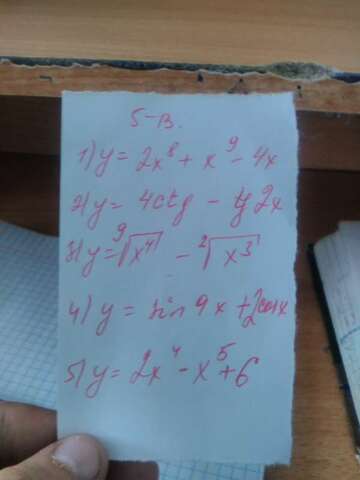 5-В.
1) y = 2x⁸ + x⁹ - 4x
2) y = 4ctg - tg 2x
3) y = ⁹√x⁴ - ²√x³
4) y = sin 9x + 2cosx
5) y = 2x⁴ - x⁵ + 6